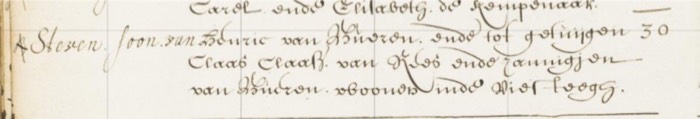 Carel ende Elisabeth de Kempenaar.
Steven soon van Henric van Bueren. ende tot getuijgen 30
Claas Claasz. van Rees ende Jannigjen
van Bueren. woonen inde Viefteegh.